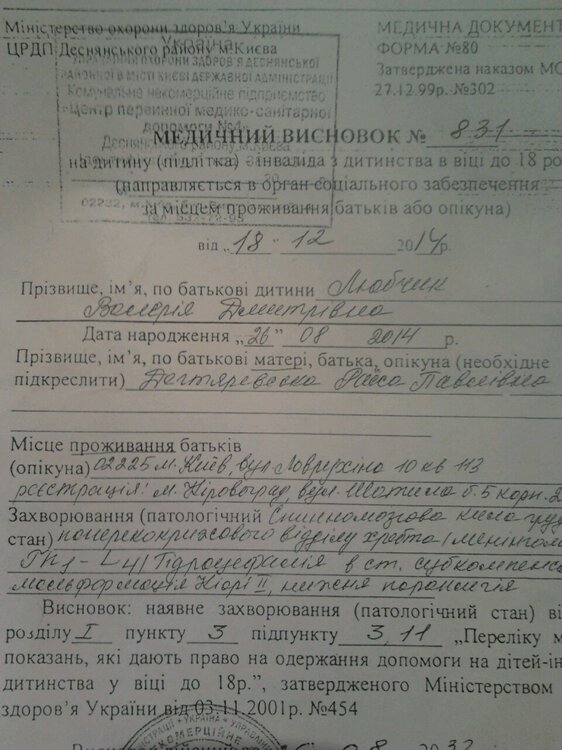 Міністерство охорони здоров'я України
ЦРДП Деснянського району м.Києва
МЕДИЧНА ДОКУМЕНТ
ФОРМА №80
Затверджена наказом МО
27.12.99р. №302
Україна
УПРАВЛІННЯ ОХОРОНИ ЗДОРОВ'Я ДЕСНЯНСЬКОЇ
РАЙОННОЇ В МІСТІ КИЄВІ ДЕРЖАВНОЇ АДМІНІСТРАЦІЇ
Комунальне некомерційне підприємство
"Центр первинної медико-санітарної
допомоги №4"
Деснянського району м.Києва
МЕДИЧНИЙ ВИСНОВОК № 831
на дитину (підлітка) - інвалида з дитинства в віці до 18 ро
(направляється в орган соціального забезпечення
за місцем проживання батьків або опікуна)
від „18" 12 2014р.
Прізвище, ім'я, по батькові дитини Любчик
Валерія Дмитрівна
Дата народження „26" 08 2014 р.
Прізвище, ім'я, по батькові матері, батька, опікуна (необхідне
підкреслити) Дегтяревська Раїса Павлівна
Місце проживання батьків
(опікуна) 02225 м. Київ, вул. 10 кв 113
реєстрація: м. Кіровоград вул. Шатила б. 5 корп. 2
Захворювання (патологічний Спинномозкова кила
стан) попереково крижового відділу хребта
Гідроцефалія в ст. субкомпенс
мальформація Кіарі II, нижня
Висновок: наявне захворювання (патологічний стан) ві
розділу I пункту 3 підпункту 3,11 „Переліку м
показань, які дають право на одержання допомоги на дітей-ін
дитинства у віці до 18р.", затвердженого Міністерством
здоров'я України від 03.11.2001р. №454